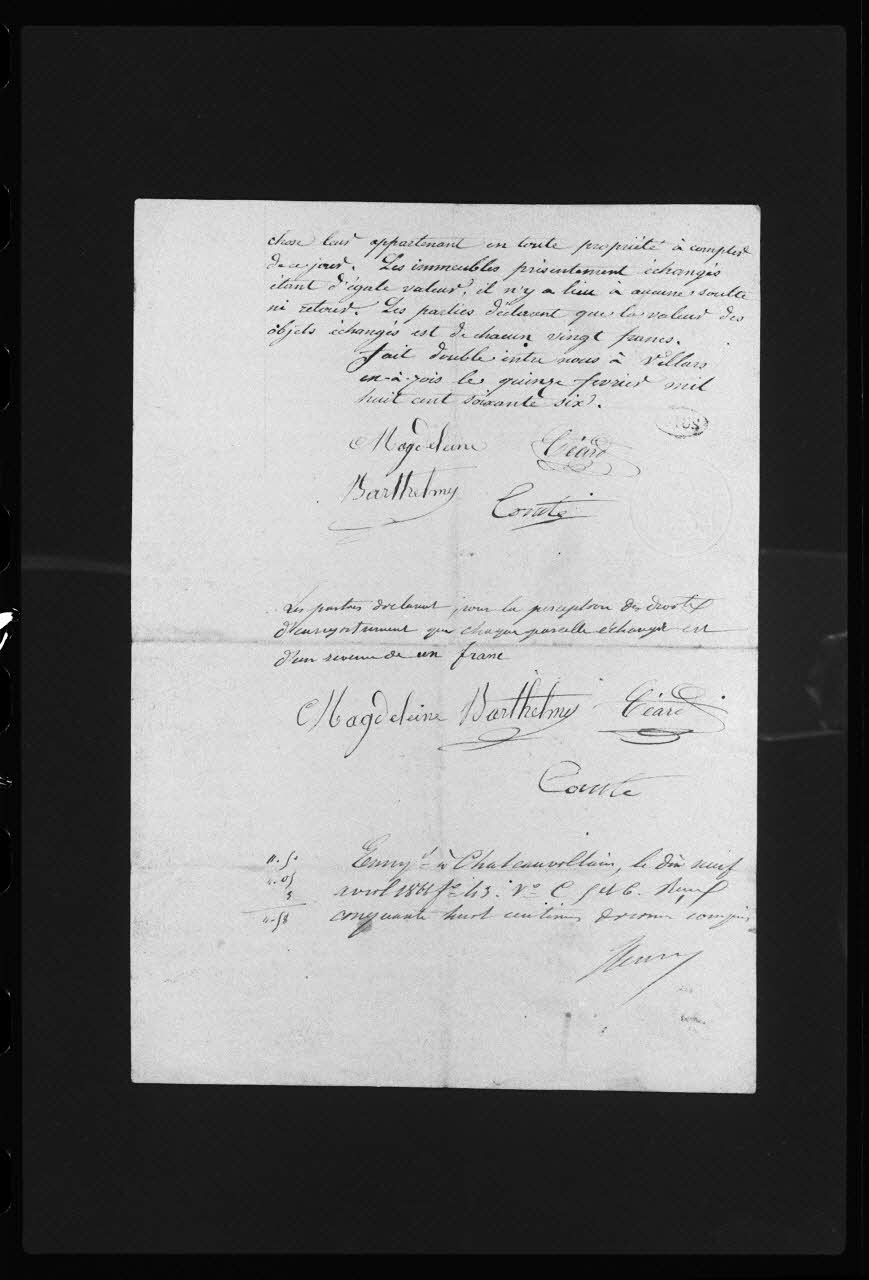 chose leur appartenant en toute propriété à compter
de ce jour. Les immeubles présentement échangés
étant d'égale valeur, il n'y a lieu à aucune soulte
ni retour. Les parties déclarent que la valeur des
objets échangés est de chacun vingt francs.
Fait double entre nous à Villars
en-azois le quinze février mil
huit cent soixante six.
Magdeleine
Barthelmy
Comte
Les parties déclarent, pour la perception des droits
d'enregistrement que chaque parcelle échangée est
d'un revenu de un franc
Magdeleine Barthelmy
Comte
".50
".05
3
".58
Enregé à Chateauvillain, le dix neuf
avril 186 fo 43. Vo C. 5 et 6. Reçu
cinquante huit centimes décime compris
Henry